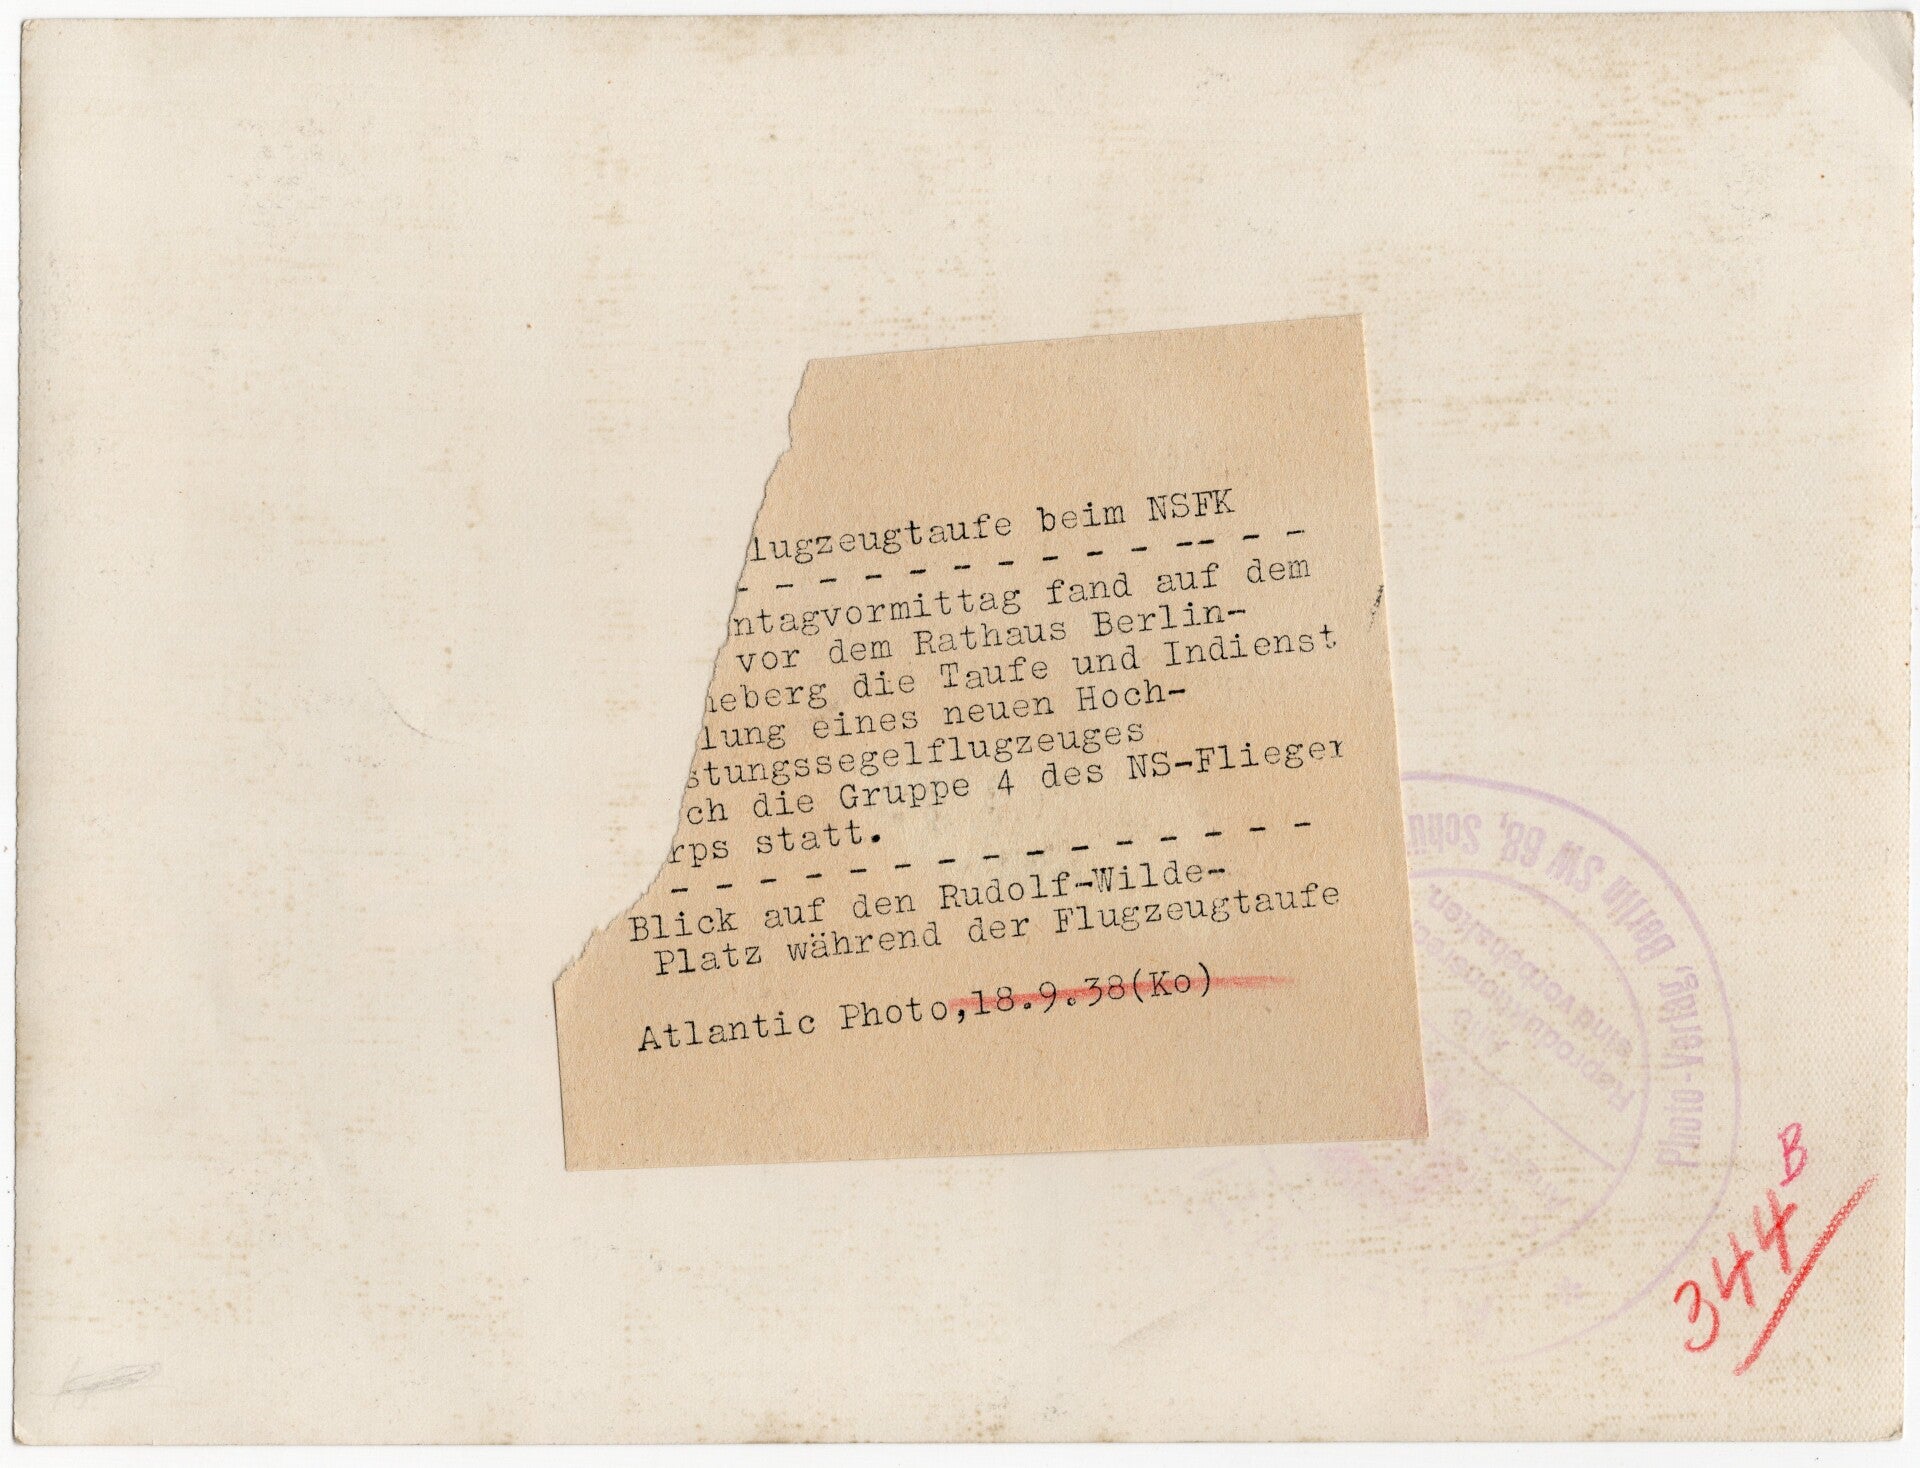 lugzeugtaufe beim NSFK
- - - - - - - - - - - -- - -
ntagvormittag fand auf dem
vor dem Rathaus Berlin-
heberg die Taufe und Indienst
lung eines neuen Hoch-
stungssegelflugzeuges
ch die Gruppe 4 des NS-Flieger
rps statt.
- - - - - - - - - - - - - - -
Blick auf den Rudolf-Wilde-
Platz während der Flugzeugtaufe
Atlantic Photo,18.9.38(Ko)
Photo-Verlag, Berlin SW 68, Schü
sind vorbehalten
344 B